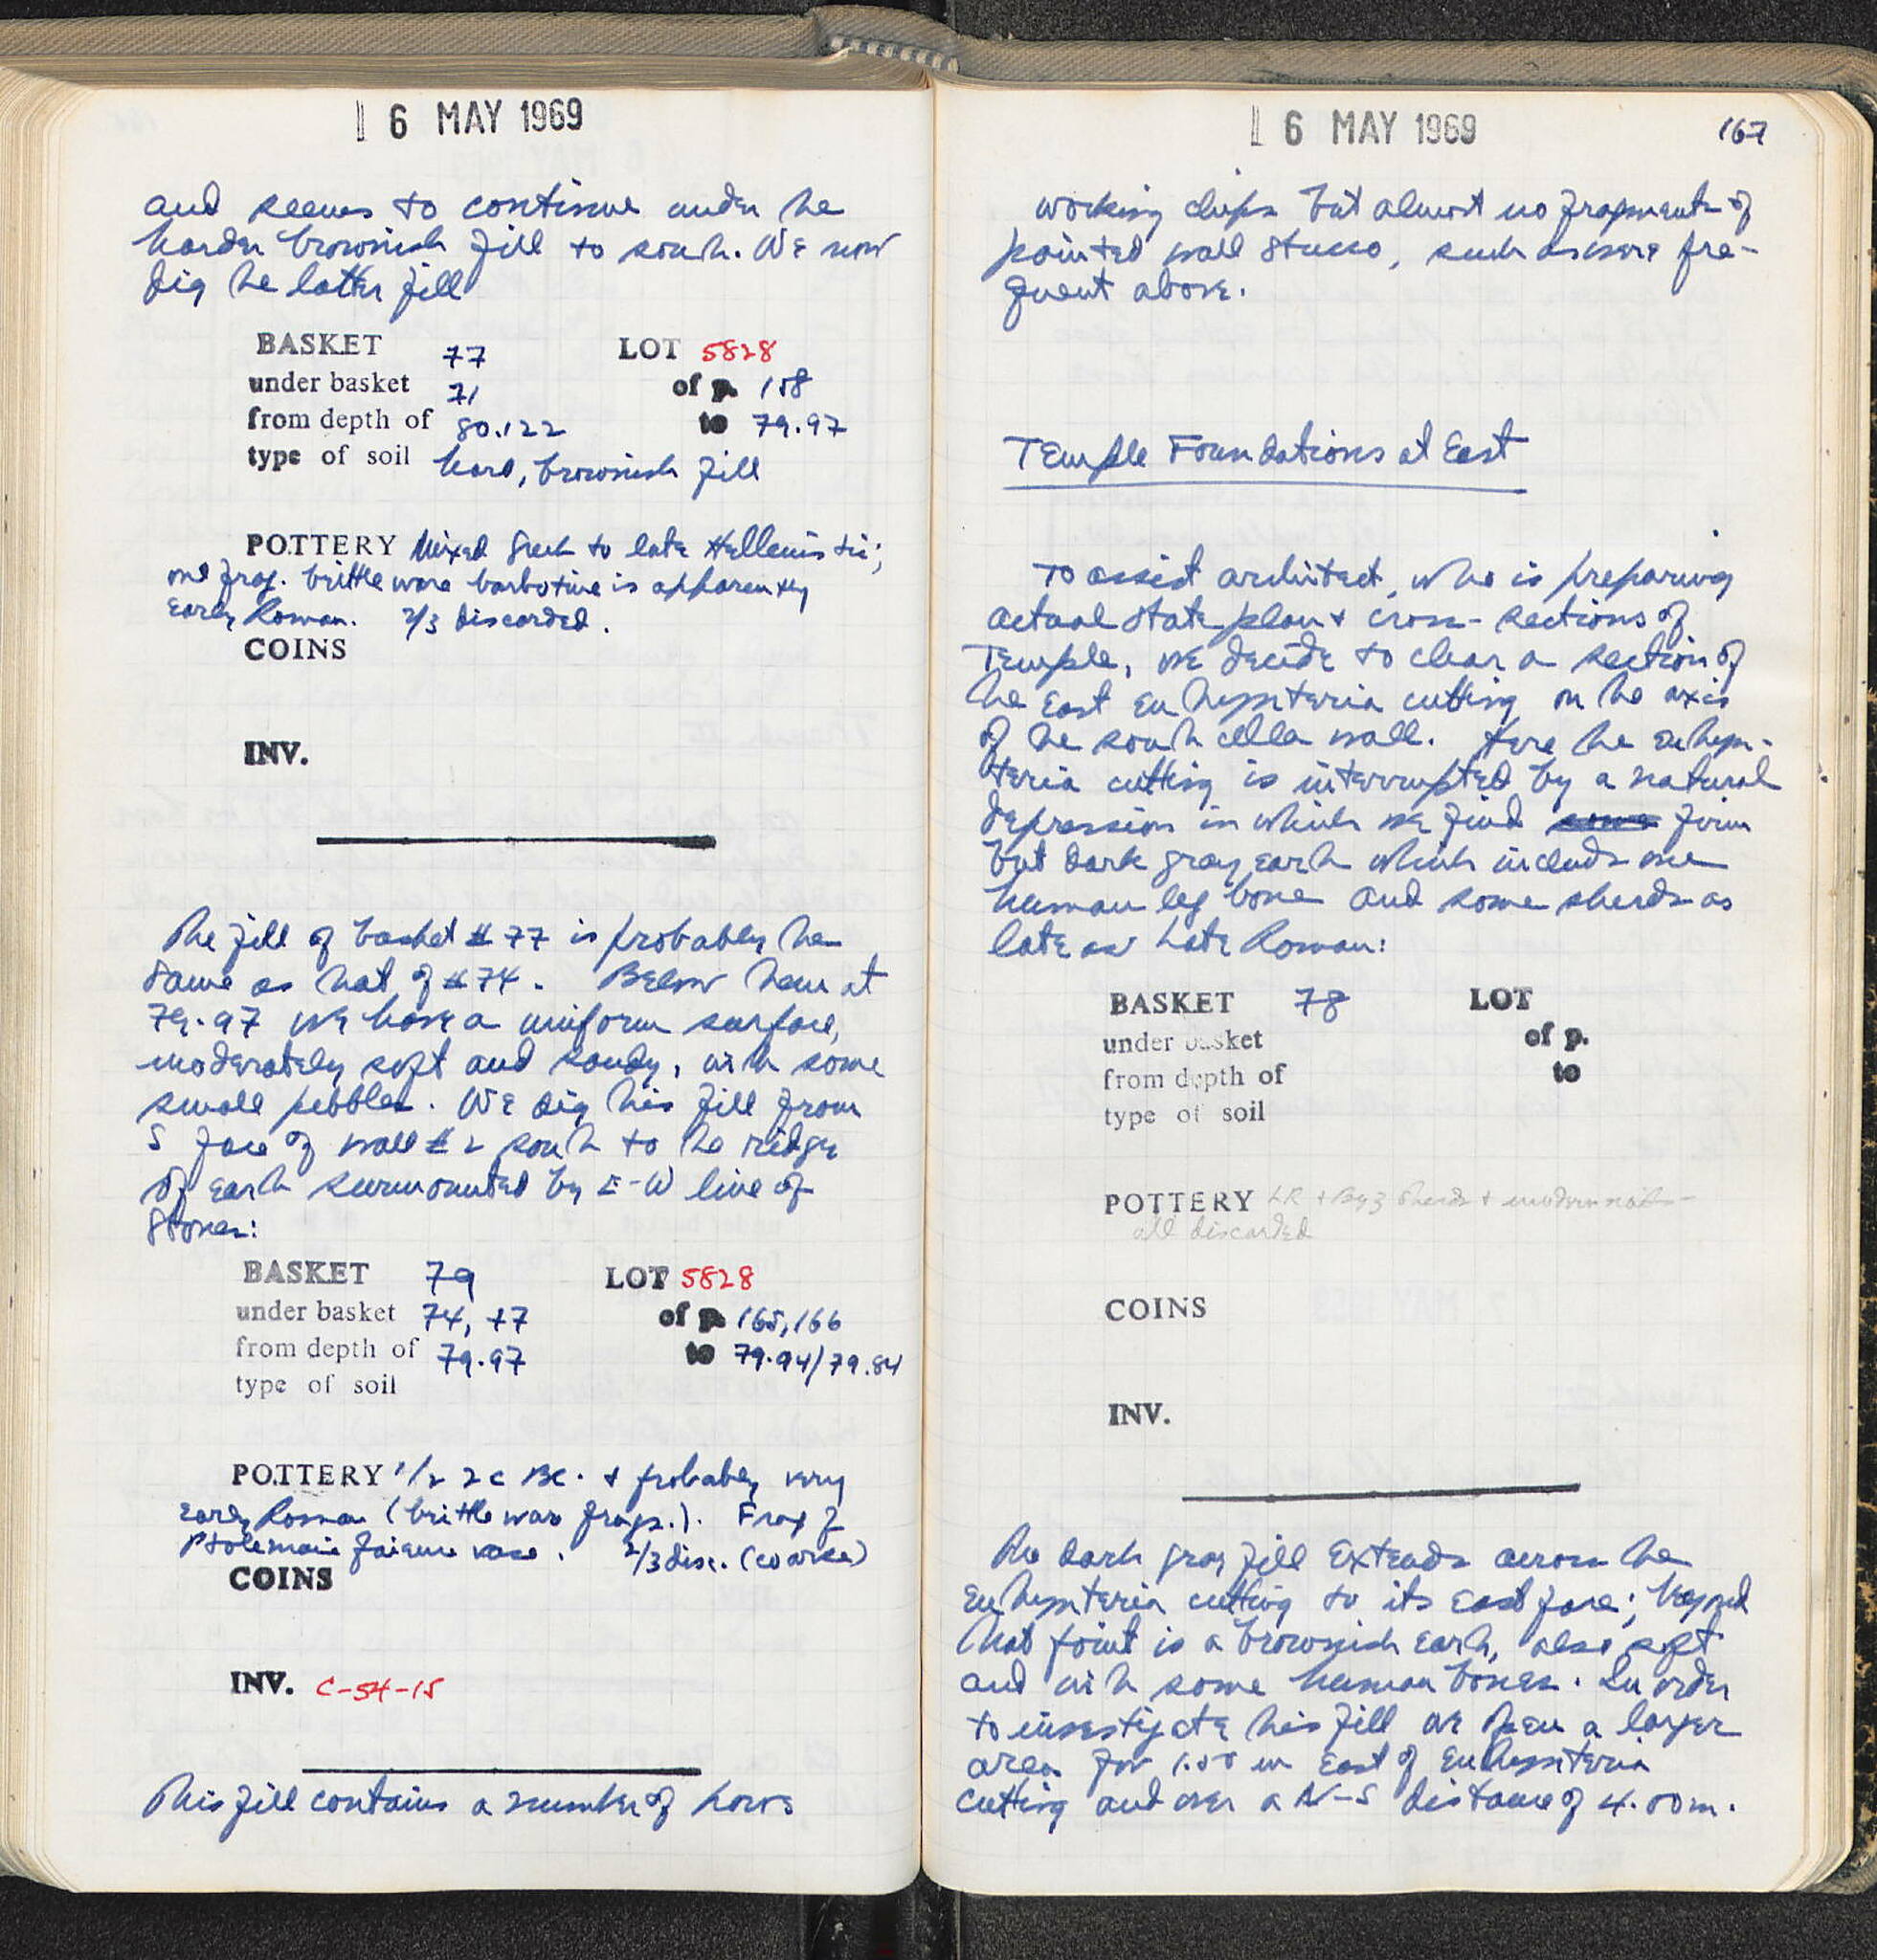 16 MAY 1969
and seems to continue under the
harder brownish fill to south. We now
dig the latter fill
BASKET 77 LOT 5828
under basket 71 of p. 158
from depth of 80.122 to 79.97
type of soil hard, brownish fill
POTTERY Mixed Greek to late Hellenistic;
one frag. brittle ware barbotine is apparently
Early Roman. 2/3 discarded.
COINS
INV.
The fill of basket #77 is probably the
same as that of #74. Below them at
79.97 we have a uniform surface,
moderately soft and sandy, with some
small pebbles. We dig this fill from
S face of wall #2 south to the ridge
of earth surmounted by E-W line of
stones:
BASKET 79 LOT 5828
under basket 74, 77 of p. 165,166
from depth of 79.97 to 79.94/79.84
type of soil
POTTERY 1/2 2c BC. + probably very
Early Roman (brittle ware frags.). Frag of
Ptolemaic faience vase. 2/3 disc. (coarse)
COINS
INV. C-54-15
This fill contains a number of poros
16 MAY 1969 167
working chips but almost no fragments of
painted wall stucco, such as were fre-
quent above.
Temple Foundations at East
To assist architect, who is preparing
actual state plan + cross-sections of
Temple, we decide to clear a section of
the East Euthynteria cutting on the axis
of the south cella wall. Here the euthyn-
teria cutting is interrupted by a natural
depression in which we find some firm
but dark gray earth which includes one
human leg bone and some sherds as
late as Late Roman:
BASKET 78 LOT
under basket of p.
from depth of to
type of soil
POTTERY LR + Byz sherds + modern nails -
all discarded
COINS
INV.
The dark gray fill extends across the
Euthynteria cutting to its east face; beyond
that point is a brownish earth, also soft
and with some human bones. In order
to investigate this fill we open a larger
area for 1.50 m East of Euthynteria
cutting and over a N-S distance of 4.00m.